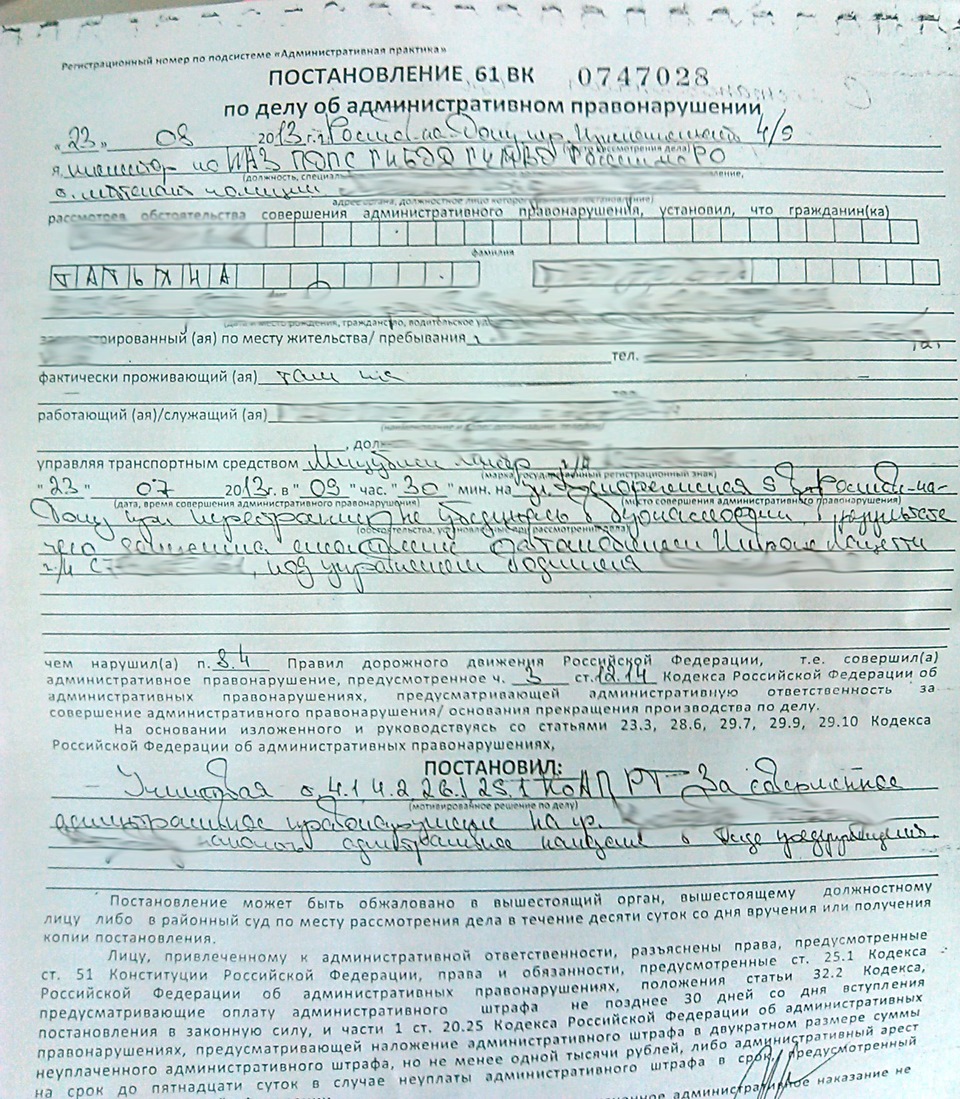 Регистрационный номер по подсистеме «Административная практика»
ПОСТАНОВЛЕНИЕ 61 ВК 0747028
по делу об административном правонарушении
"23" 08 2013 г. г. Ростов-на-Дону, 4/9
я, инспектор по ИАЗ ГИБДД России РО
(должность, специал
ст. лейтенант полиции
адрес органа, должностное лицо которого
рассмотрев обстоятельства совершения административного правонарушения, установил, что гражданин(ка)
фамилия
ТАТЬЯНА
(дата и место рождения, гражданство, водительское уд
рированный (ая) по месту жительства/ пребывания
тел.
фактически проживающий (ая) там же
работающий (ая)/служащий (ая)
, дол
управляя транспортным средством Мицубиси Лансер г/н
(марка, государственный регистрационный знак)
"23" 07 2013г. в "09" час. "30" мин. на ул. г. Ростов-на-
(дата, время совершения административного правонарушения) (место совершения административного правонарушения)
Дону при перестроении не убедилась в безопасности в результате
(обстоятельства, установленные при рассмотрении дела)
чего с автомобилем
г/н С , под управлением водителя
чем нарушил(а) п. 8.4 Правил дорожного движения Российской Федерации, т.е. совершил(а)
административное правонарушение, предусмотренное ч. 3 ст. 12.14 Кодекса Российской Федерации об
административных правонарушениях, предусматривающей административную ответственность за
совершение административного правонарушения/ основания прекращения производства по делу.
На основании изложенного и руководствуясь со статьями 23.3, 28.6, 29.7, 29.9, 29.10 Кодекса
Российской Федерации об административных правонарушениях,
ПОСТАНОВИЛ:
4.1 4.2 КоАП РФ За совершенное
(мотивированное решение по делу)
административное правонарушение на гр.
наложить административное наказание в виде предупреждения.
Постановление может быть обжаловано в вышестоящий орган, вышестоящему должностному
лицу либо в районный суд по месту рассмотрения дела в течение десяти суток со дня вручения или получения
копии постановления.
Лицу, привлеченному к административной ответственности, разъяснены права, предусмотренные
ст. 51 Конституции Российской Федерации, права и обязанности, предусмотренные ст. 25.1 Кодекса
Российской Федерации об административных правонарушениях, положения статьи 32.2 Кодекса,
предусматривающие оплату административного штрафа не позднее 30 дней со дня вступления
постановления в законную силу, и части 1 ст. 20.25 Кодекса Российской Федерации об административных
правонарушениях, предусматривающей наложение административного штрафа в двукратном размере суммы
неуплаченного административного штрафа, но не менее одной тысячи рублей, либо административный арест
на срок до пятнадцати суток в случае неуплаты административного штрафа в срок, предусмотренный
административное наказание не